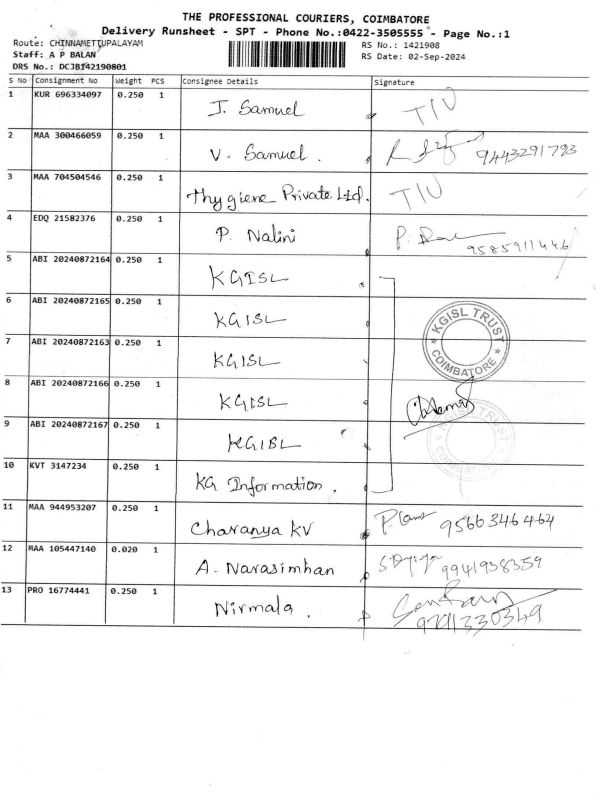 THE PROFESSIONAL COURIERS, COIMBATORE
Delivery Runsheet - SPT - Phone No.:0422-3505555 - Page No.:1
Route: CHINNAMETTUPALAYAM RS No.: 1421908
Staff: A P BALAN RS Date: 02-Sep-2024
DRS No.: DCJB142190801
S No Consignment No Weight PCS Consignee Details Signature
1 KUR 696334097 0.250 1 J. Samuel TIU
2 MAA 300466059 0.250 1 V. Samuel . 9443291793
3 MAA 704504546 0.250 1 Thygiene Private Ltd. TIU
4 EDQ 21582376 0.250 1 P. Nalini 9585911446
5 ABI 20240872164 0.250 1 KGISL
6 ABI 20240872165 0.250 1 KGISL
7 ABI 20240872163 0.250 1 KGISL
KGISL TRUST
COIMBATORE
8 ABI 20240872166 0.250 1 KGISL
9 ABI 20240872167 0.250 1 KGISL
KGISL TRUST
COIMBATORE
10 KVT 3147234 0.250 1 KG Information .
11 MAA 944953207 0.250 1 Charanya KV 9566346464
12 MAA 105447140 0.020 1 A. Narasimhan 9941938359
13 PRO 16774441 0.250 1 Nirmala .
9791330349